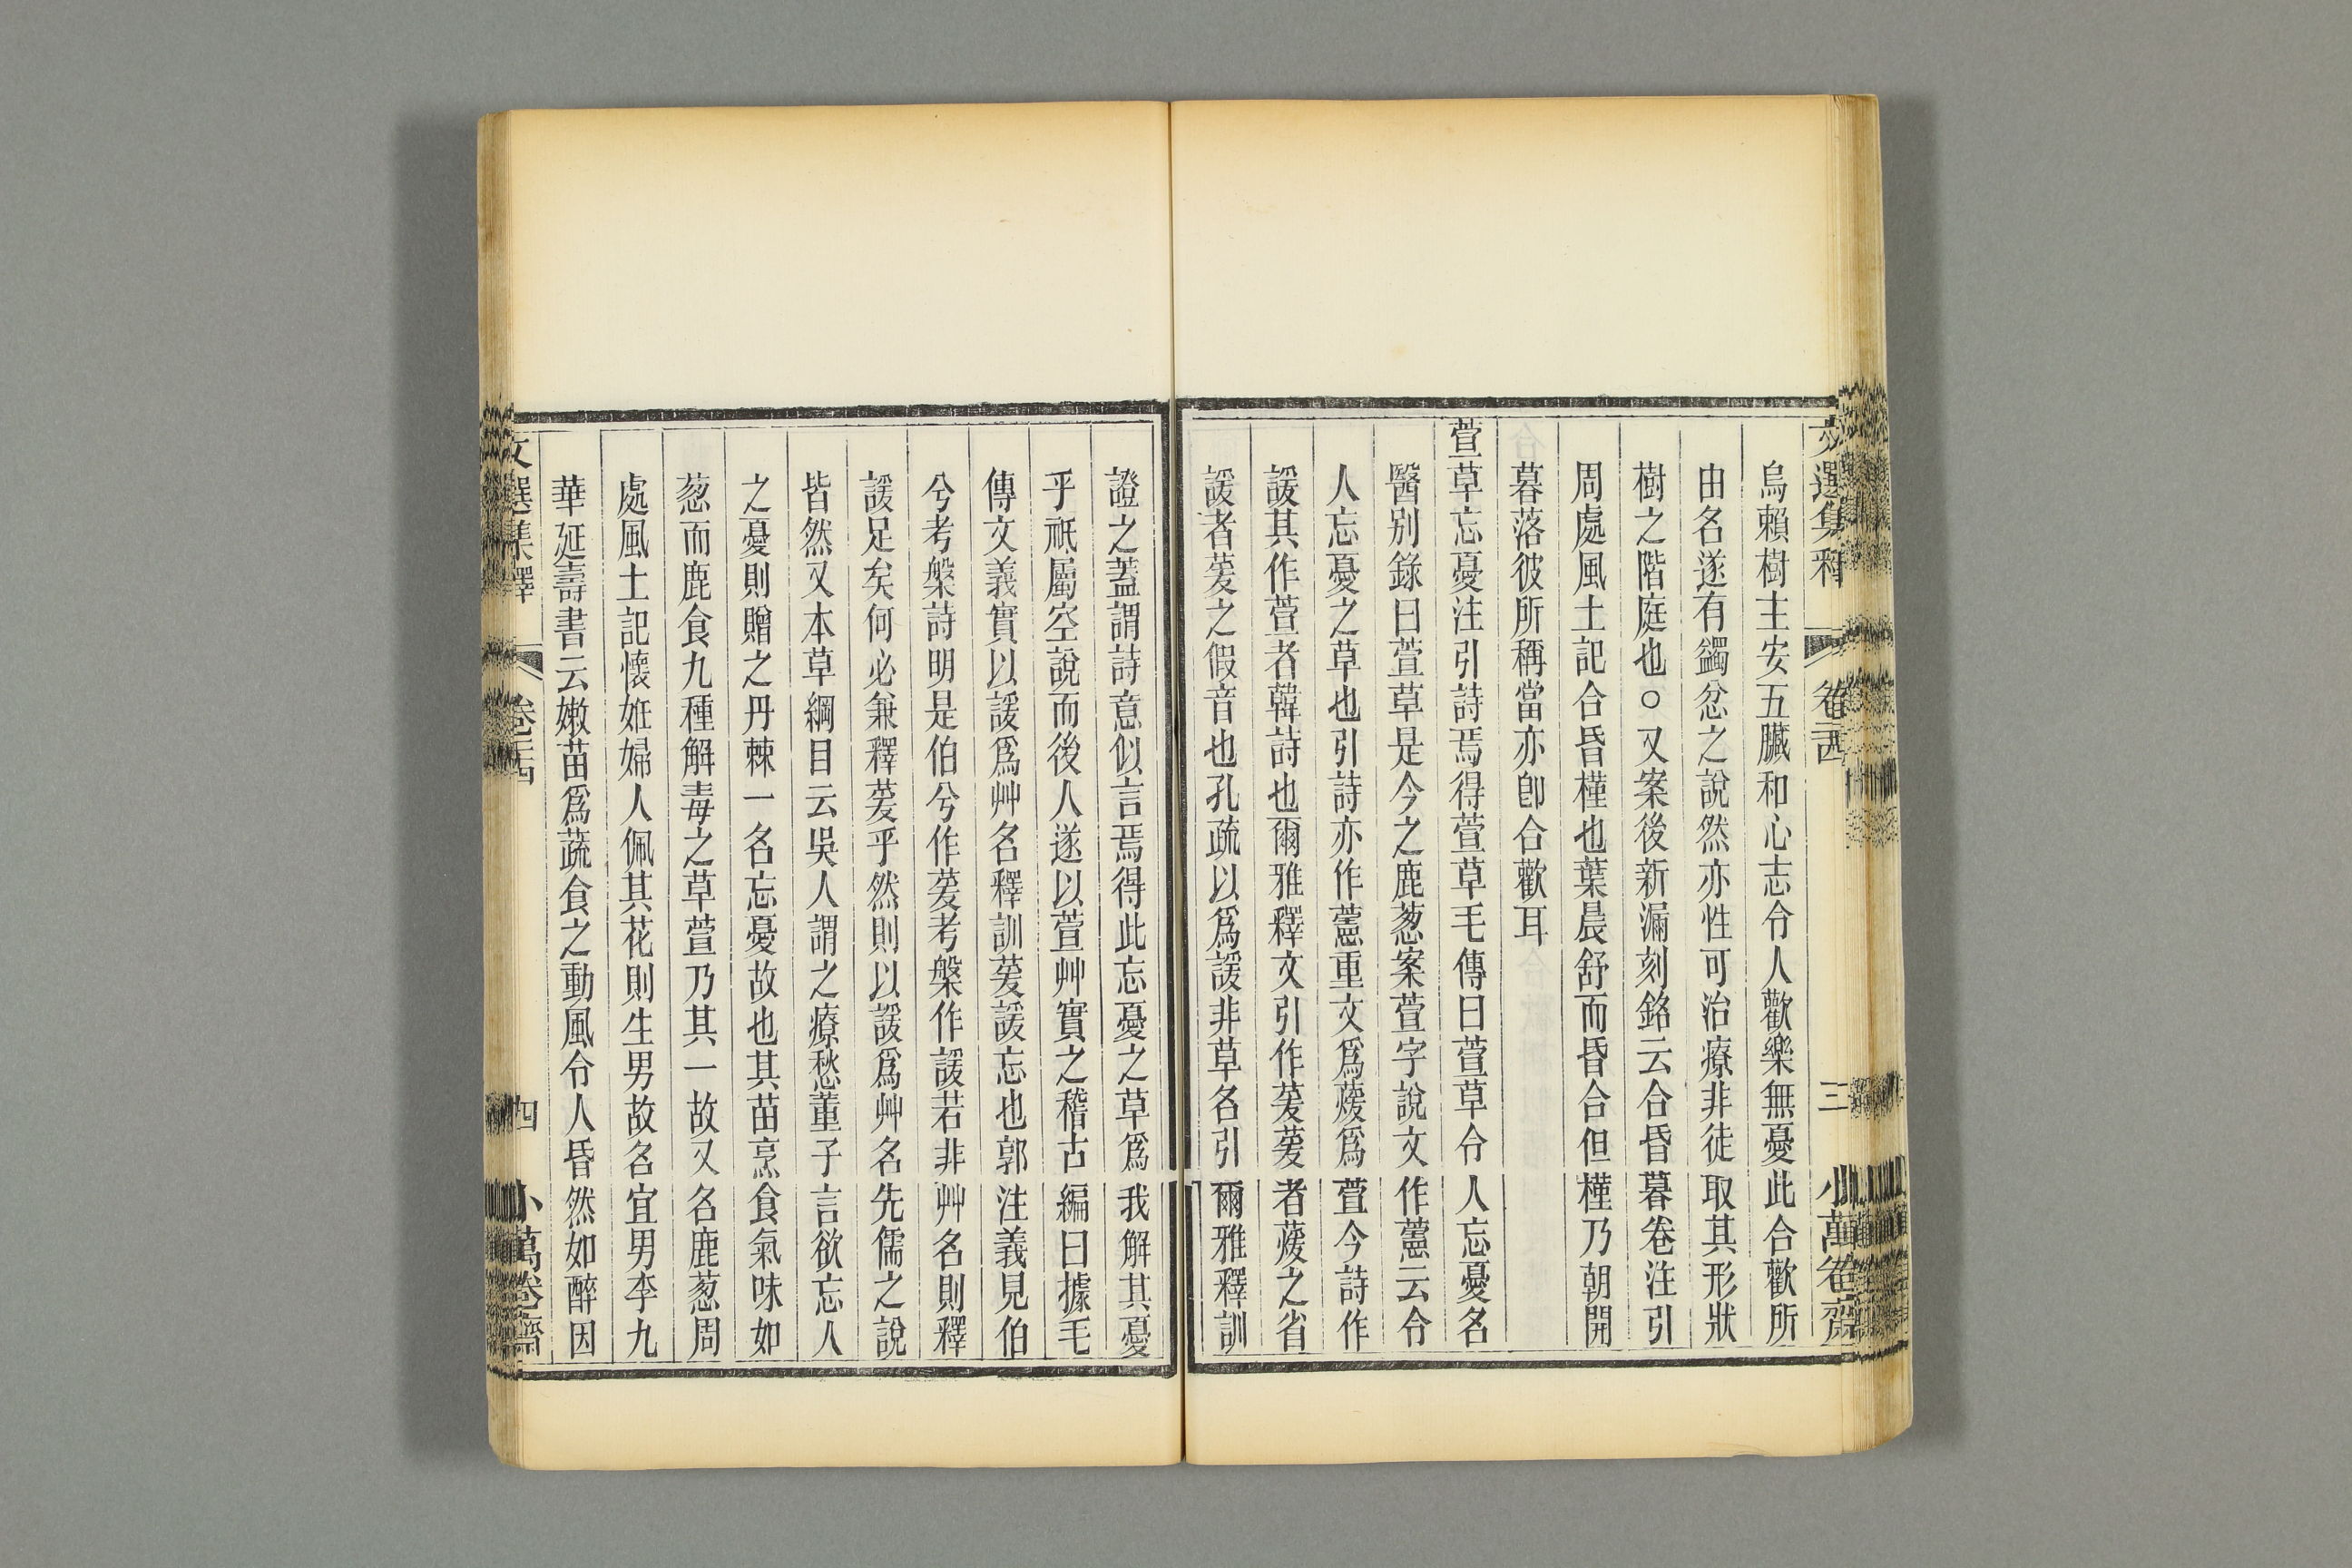 文選集釋 卷二十四 三 小萬卷齋
烏賴樹主安五臟和心志令人歡樂無憂此合歡所
由名遂有蠲忿之說然亦性可治療非徒取其形狀
樹之階庭也○又案後新漏刻銘云合昏暮卷注引
周處風土記合昏槿也葉晨舒而昏合但槿乃朝開
暮落彼所稱當亦卽合歡耳
萱草忘憂注引詩焉得萱草毛傳曰萱草令人忘憂名
醫別錄曰萱草是今之鹿葱案萱字說文作藼云令
人忘憂之草也引詩亦作藼重文爲蕿爲萱今詩作
諼其作萱者韓詩也爾雅釋文引作萲萲者蕿之省
諼者萲之假音也孔疏以爲諼非草名引爾雅釋訓
證之蓋謂詩意似言焉得此忘憂之草爲我解其憂
乎祇屬空說而後人遂以萱艸實之稽古編曰據毛
傳文義實以諼爲艸名釋訓萲諼忘也郭注義見伯
兮考槃詩明是伯兮作萲考槃作諼若非艸名則釋
諼足矣何必兼釋萲乎然則以諼爲艸名先儒之說
皆然又本草綱目云吳人謂之療愁董子言欲忘人
之憂則贈之丹棘一名忘憂故也其苗烹食氣味如
葱而鹿食九種解毒之草萱乃其一故又名鹿葱周
處風土記懷姙婦人佩其花則生男故名宜男李九
華延壽書云嫩苗爲蔬食之動風令人昏然如醉因
文選集釋 卷二十四 四 小萬卷齋